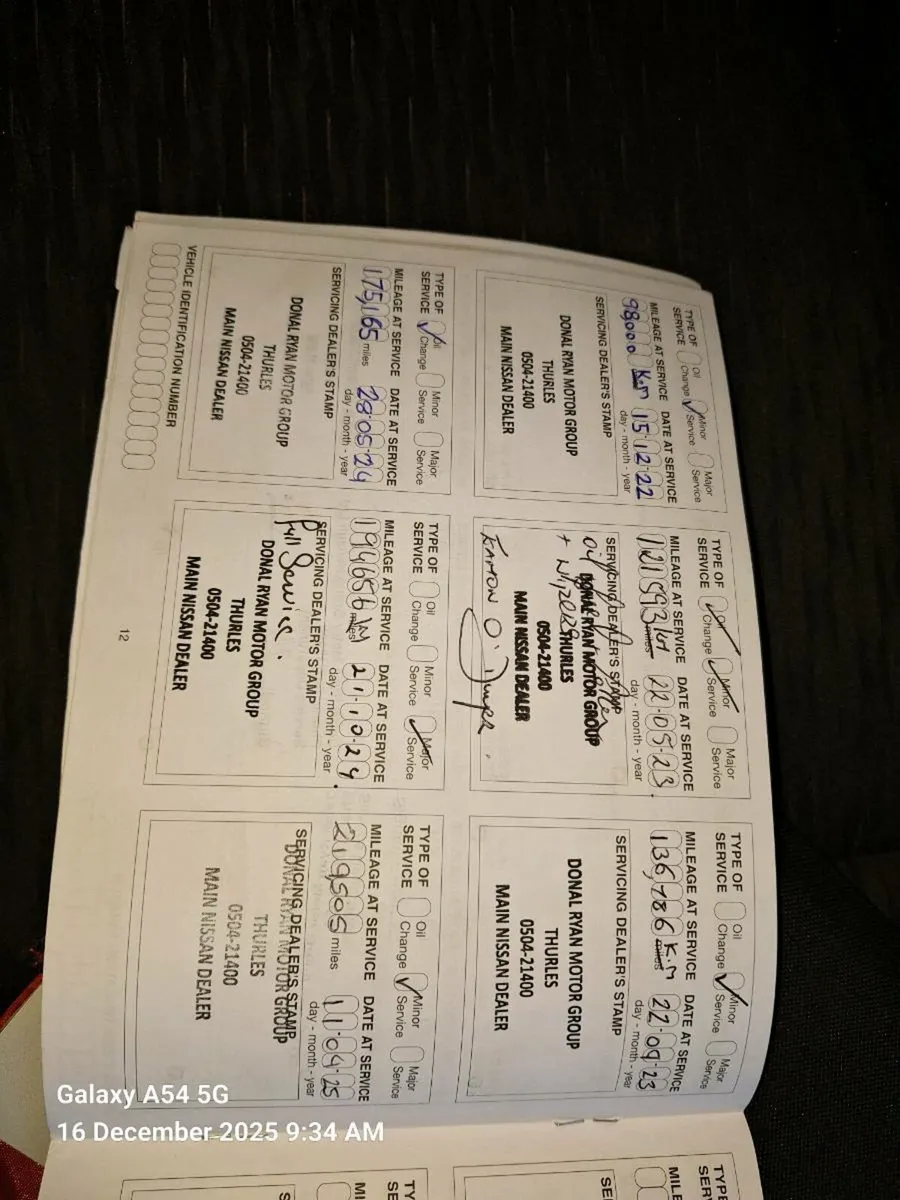 TYPE OF SERVICE Oil Change ✓ Minor Service Major Service
MILEAGE AT SERVICE DATE AT SERVICE
98000 K.m 15.12.22
day - month - year
SERVICING DEALER'S STAMP
DONAL RYAN MOTOR GROUP
THURLES
0504-21400
MAIN NISSAN DEALER
TYPE OF SERVICE ✓ Oil Change ✓ Minor Service Major Service
MILEAGE AT SERVICE DATE AT SERVICE
121593 KM miles 22.05.23.
day - month - year
SERVICING DEALER'S STAMP
oil
DONAL RYAN MOTOR GROUP
+ THURLES
0504-21400
MAIN NISSAN DEALER
TYPE OF SERVICE Oil Change ✓ Minor Service Major Service
MILEAGE AT SERVICE DATE AT SERVICE
136,786 K.m miles 22.09.23
day - month - year
SERVICING DEALER'S STAMP
DONAL RYAN MOTOR GROUP
THURLES
0504-21400
MAIN NISSAN DEALER
TYPE OF SERVICE ✓ Oil Change Minor Service Major Service
MILEAGE AT SERVICE DATE AT SERVICE
175,165 miles 28.05.24
day - month - year
SERVICING DEALER'S STAMP
DONAL RYAN MOTOR GROUP
THURLES
0504-21400
MAIN NISSAN DEALER
TYPE OF SERVICE Oil Change Minor Service ✓ Major Service
MILEAGE AT SERVICE DATE AT SERVICE
194656 miles 21.10.24.
day - month - year
SERVICING DEALER'S STAMP
full Service.
DONAL RYAN MOTOR GROUP
THURLES
0504-21400
MAIN NISSAN DEALER
TYPE OF SERVICE Oil Change ✓ Minor Service Major Service
MILEAGE AT SERVICE DATE AT SERVICE
219,505 miles 11.04.25
day - month - year
SERVICING DEALER'S STAMP
DONAL RYAN MOTOR GROUP
THURLES
0504-21400
MAIN NISSAN DEALER
VEHICLE IDENTIFICATION NUMBER
12
Galaxy A54 5G
16 December 2025 9:34 AM